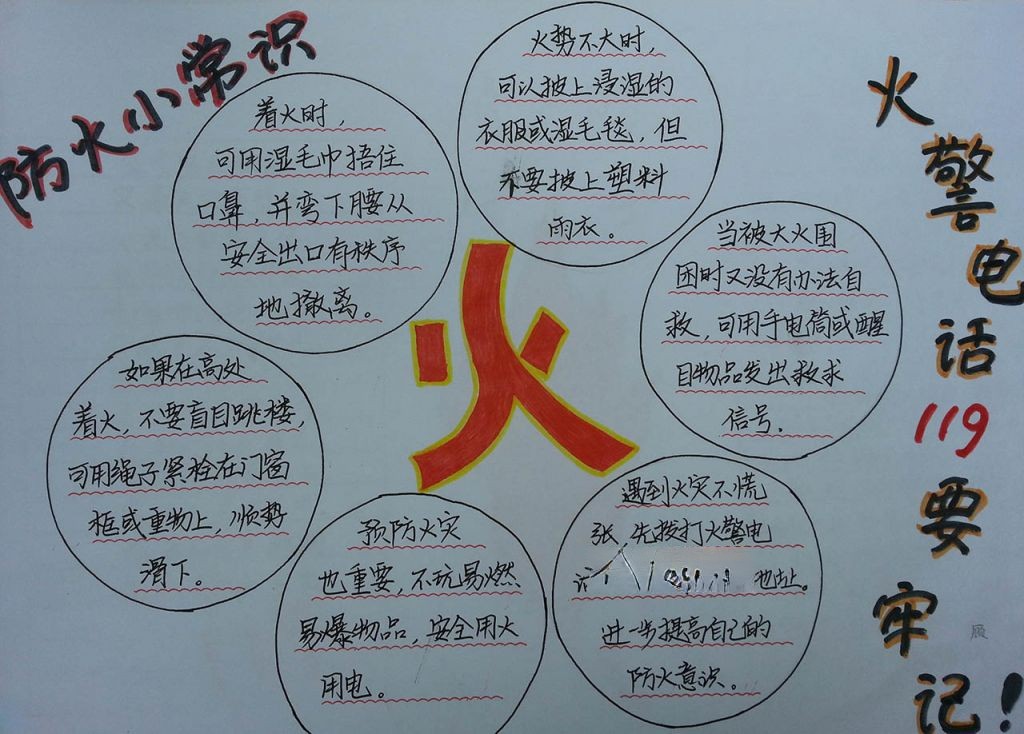 防火小常识
着火时，
可用湿毛巾捂住
口鼻，并弯下腰从
安全出口有秩序
地撤离。
火势不大时，
可以披上浸湿的
衣服或湿毛毯，但
不要披上塑料
雨衣。
当被大火围
困时又没有办法自
救，可用手电筒或醒
目物品发出救求
信号。
如果在高处
着火，不要盲目跳楼，
可用绳子紧栓在门窗
框或重物上，顺势
滑下。
预防火灾
也重要，不玩易燃
易爆物品，安全用火
用电。
遇到火灾不慌
张，先拨打火警电
地址。
进一步提高自己的
防火意识。
火
火警电话119要牢记！